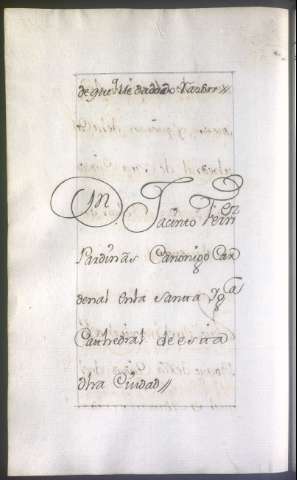 de que
Dn Jacinto Fern
Sardiñas Canonigo Car
denal en la santa Yga
Cathedral de esta
dha Ciudad//